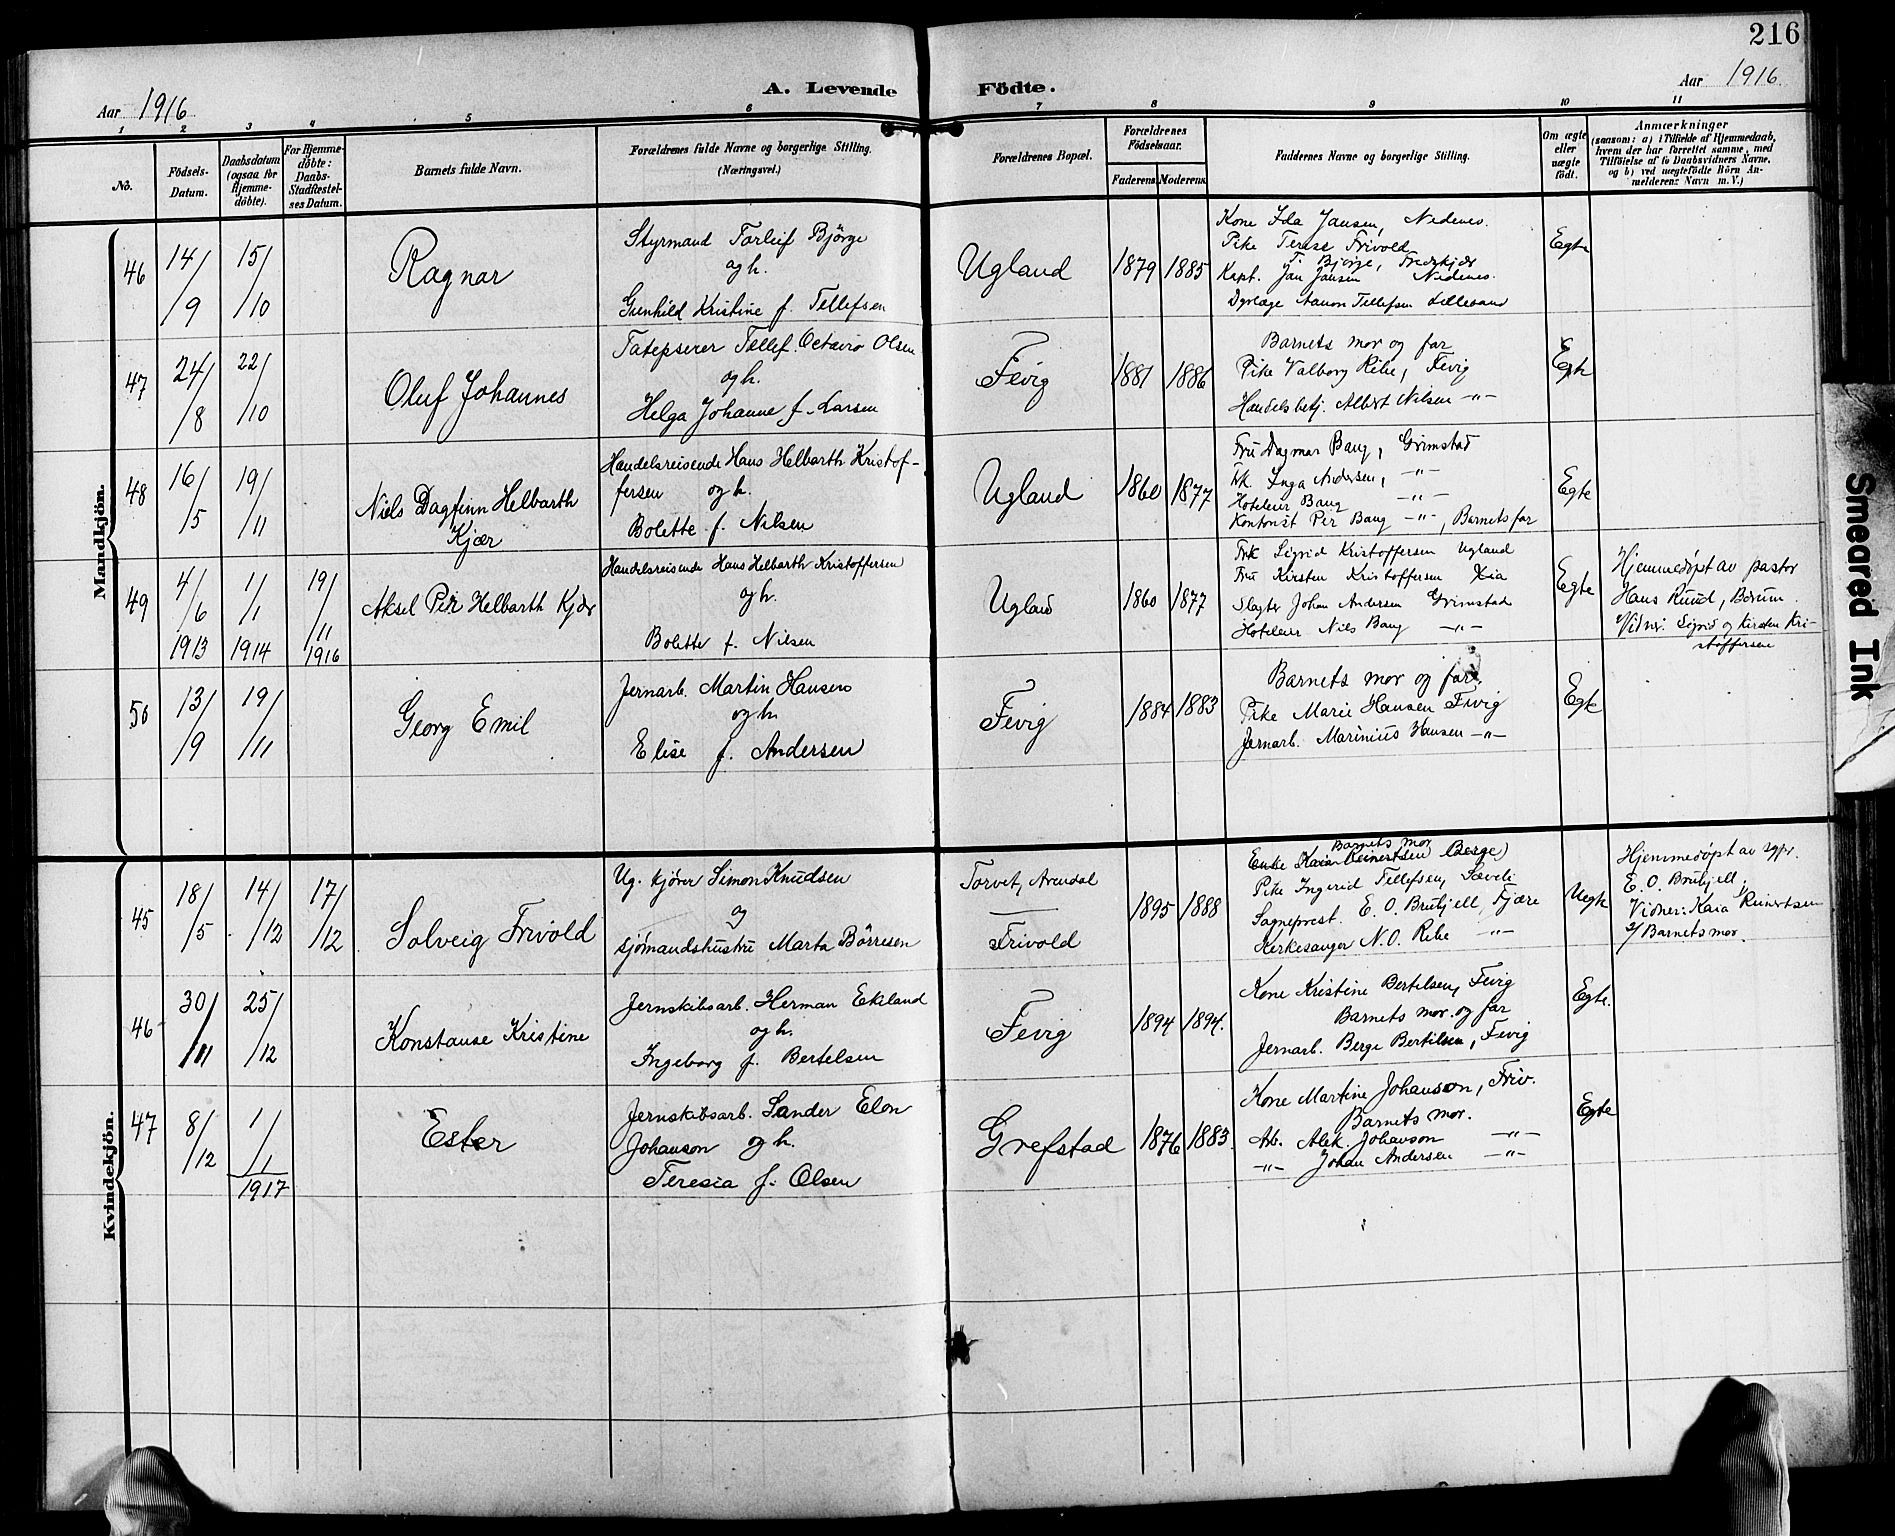 216
Aar 1916
A. Levende Födte.
Aar 1916.
1 2 3 4 5 6 7 8 9 10 11
No.
Födsels-
Datum.
Daabsdatum
(ogsaa for
Hjemme-
döbte).
For Hjemme-
döbte:
Daabs-
Stadfæstel-
ses Datum.
Barnets fulde Navn.
Forældrenes fulde Navne og borgerlige Stilling.
(Næringsvei.)
Forældrenes Bopæl.
Forældrenes
Födselsaar.
Faderens
Moderens.
Faddernes Navne og borgerlige Stilling.
Om ægte
eller
uægte
födt.
Anmærkninger
(saasom: a) i Tilfælde af Hjemmedaab,
hvem der har forrettet samme, med
Tilföielse af to Daabsvidners Navne,
og b) ved uægtefödte Börn An-
melderens Navn m. V.)
Mandkjön.
46
14/9
15/10
Ragnar
Styrmand Torleif Bjørge
og h.
Gunhild Kristine f. Tellefsen
Ugland
1879
1885
Kone Ida Jansen, Nedenes.
Pike Terese Frivold
T. Bjørge,
Kapt. Jan Jansen Nedenes.
Dyrlæge Aanon Tellefsen Lillesand
Egte
47
24/8
22/10
Oluf Johannes
Tellef Octavio Olsen
og h.
Helga Johanne f. Larsen
Fevig
1881
1886
Barnets mor og far
Pike Valborg Ribe, Fevig
Handelsbetj. Albert Nilsen -"-
Egte
48
16/5
19/11
Niels Dagfinn Helbarth
Kjær
Handelsreisende Hans Helbarth Kristof-
fersen og h.
Bolette f. Nilsen
Ugland
1860
1877
Fru Dagmar Bang, Grimstad
Frk. Inga Andersen, -"-
Hoteleier Bang -"-
Kontorist Per Bang -"-, Barnets far
Egte
49
4/6 1913
1/1 1914
19/11 1916
Aksel Per Helbarth Kjær
Handelsreisende Hans Helbarth Kristoffersen
og h.
Bolette f. Nilsen
Ugland
1860
1877
Frk Sigrid Kristoffersen Ugland
Fru Kirsten Kristoffersen
Slagter Johan Andersen Grimstad
Hoteleier Nils Bang -"-
Egte
Hjemmedøpt av pastor
Hans Ruud, Bærum.
Vidner: Sigrid og Kirsten Kri-
stoffersen
50
13/9
19/11
Georg Emil
Jernarb. Martin Hansen
og h.
Elise f. Andersen
Fevig
1884
1883
Barnets mor og far,
Pike Marie Hansen Fevig
Jernarb. Marinius Hansen -"-
Egte
Kvindekjön.
45
18/5
14/12
17/12
Solveig Frivold
Ug. kjører Simon Knudsen
og
sjømandshustru Marta Børresen
Torvet, Arendal
Frivold
1895
1888
Barnets mor
Enke Kaia Reinertsen Berge)
Pike Ingerid Tellefsen, Sæveli
Sogneprest. E. O. Bruhjell, Fjære
Kirkesanger N. O. Ribe -"-
Uegte
Hjemmedøpt av sgpr.
E. O. Bruhjell.
Vidner: Kaia Reinertsen
Barnets mor.
46
30/11
25/12
Konstanse Kristine
Jernskibsarb. Herman Ekeland
og h.
Ingeborg f. Bertelsen
Fevig
1894
1894.
Kone Kristine Bertilsen, Fevig
Barnets mor. og far
Jernarb. Berge Bertilsen, Fevig
Egte.
47
8/12
1/1
1917
Ester
Jernskibsarb. Sander Elon
Johanson og h.
Teresia f. Olsen
Grefstad
1876
1883.
Kone Martine Johanson, Friv.
Barnets mor.
Arb. Alek. Johanson -"-
-"- Johan Andersen -"-
Egte
Smeared Ink